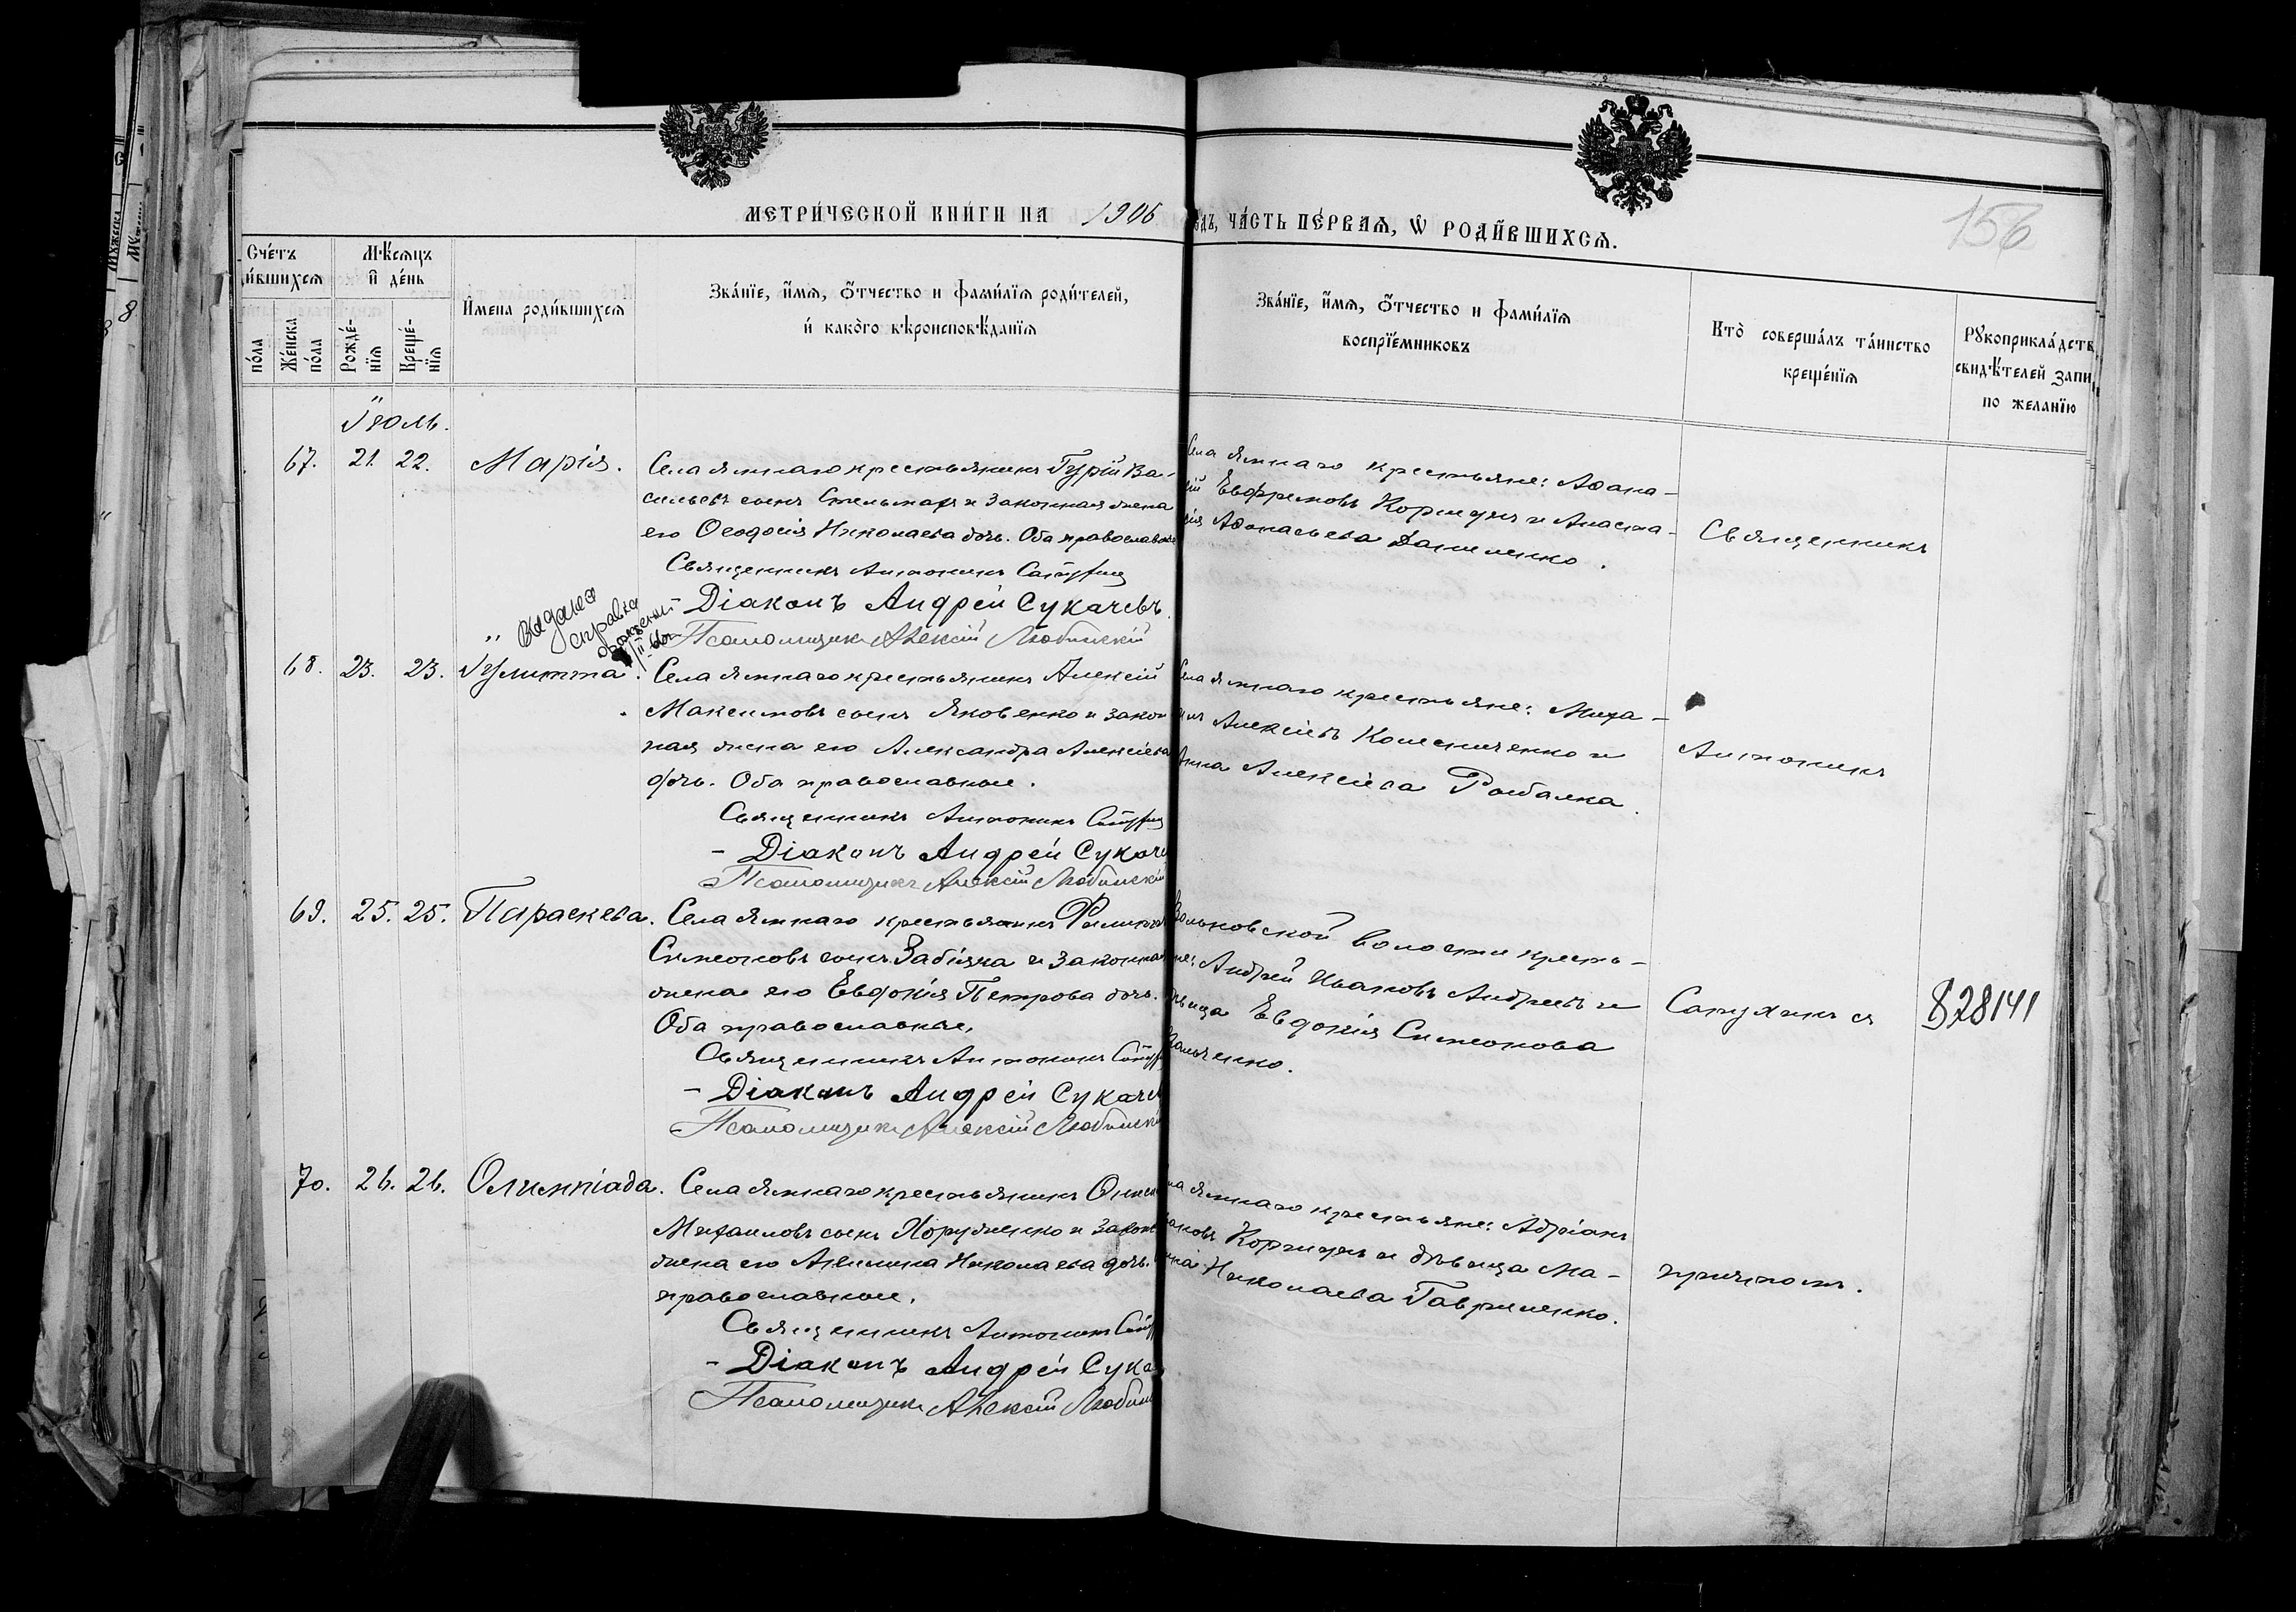 МЕТРИ́ЧЕСКОЙ КНИ́ГИ НА 1906
ЧА́СТЬ ПЕ́РВАѦ, Ѡ҆ РОДИ́ВШИХСѦ.
156
Сче́тъ
и́вшихсѧ
по́ла
Же́нска
по́ла
Мѣ́сѧцъ
и҆ де́нь
Рожде́-
нїѧ
Креще́-
нїѧ
И҆мена роди́вшихсѧ
Зва́нїе, и҆́мѧ, ѻ҆́тчество и фами́лїѧ роди́телей,
и҆ како́го вѣроисповѣ́данїѧ
Зва́нїе, и҆́мѧ, ѻ҆́тчество и фами́лїѧ
воспрїе́мниковъ
Кто̀ соверша́лъ та́инство
креще́нїѧ
Рꙋкоприкла́дств
свидѣ́телей запи
по жела́нїю
Іюль.
67. 21. 22. Марія.
Села Ямнаго крестьянинъ Гурій Ва-
сильевъ сынъ Стельмахъ и законная жена
его Ѳеодосія Николаева дочь. Оба православные
Священникъ Антонинъ
- Діаконъ Андрей Сукачевъ
Псаломщикъ Алексій Любинскій
Села Ямнаго крестьяне: Аѳана-
сій Евфремовъ Коржунъ и Анаста-
сія Аѳанасьева Даниленко.
Священникъ
Выдана
справка
68. 23. 23. Іулитта.
Села Ямнаго крестьянинъ Алексій
Максимовъ сынъ Яковенко и закон
ная жена его Александра Алексіева
дочь. Оба православные.
Священникъ Антонинъ
- Діаконъ Андрей Сукаче
Псаломщикъ Алексій Любинскій
Села Ямнаго крестьяне: Миха-
илъ Алексіевъ Колесниченко и
Анна Алексіева Рыбалка.
Антонинъ
69. 25. 25. Параскева.
Села Ямнаго крестьянинъ Филиппъ
Симеоновъ сынъ Забіяка и законная
жена его Евдокія Петрова дочь.
Оба православные.
Священникъ Антонинъ
- Діаконъ Андрей Сукачев
Псаломщикъ Алексій Любински
волости кресть-
не: Андрей Ивановъ Андреевъ и
дѣвица Евдокія Симеонова
Сапухинъ съ
828141
70. 26. 26. Олимпіада.
Села Ямнаго крестьянинъ
Михаиловъ сынъ Хоруженко и закон
жена его Акилина Николаева дочь.
православные.
Священникъ Антонинъ
- Діаконъ Андрей Сука
Псаломщикъ Алексій Любин
Ямнаго крестьяне: Адріанъ
Коржунъ и дѣвица Ма-
Николаева Гавриленко.
причтомъ.